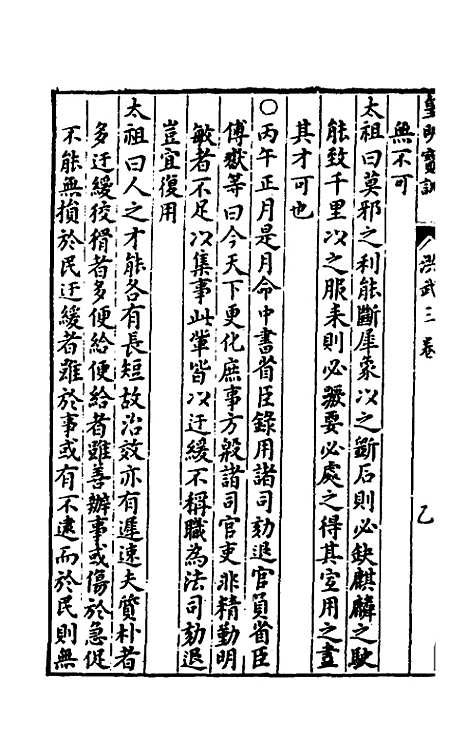 皇明寶訓
洪武三卷
乙
無不可
太祖曰莫邪之利能斷犀象以之斲石則必缺麒麟之駃
能致千里以之服耒則必蹶要必處之得其宜用之盡
其才可也
○丙午正月是月命中書省臣錄用諸司劾退官員省臣
傅瓛等曰今天下更化庶事方殷諸司官吏非精勤明
敏者不足以集事此輩皆以迂緩不稱職為法司劾退
豈宜復用
太祖曰人之才能各有長短故治效亦有遲速夫質朴者
多迂緩狡猾者多便給便給者雖善辦事或傷於急促
不能無損於民迂緩者雖於事或有不逮而於民則無